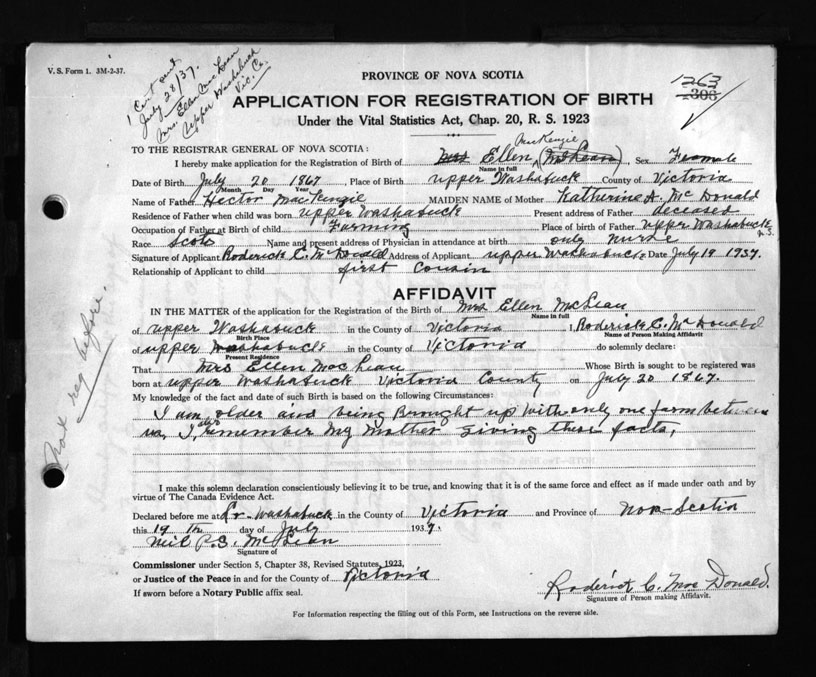 V. S. Form 1. 3M-2-37.
1 Cert out
July 28/37.
Mrs. Ellen McLean
Upper Washabuck
Vic. Co.
1263
308
PROVINCE OF NOVA SCOTIA
APPLICATION FOR REGISTRATION OF BIRTH
Under the Vital Statistics Act, Chap. 20, R. S. 1923
TO THE REGISTRAR GENERAL OF NOVA SCOTIA:
MacKenzie
I hereby make application for the Registration of Birth of Mrs Ellen (McLean) Sex Female
Name in full
Date of Birth July 20 1867 Place of Birth upper Washabuck County of Victoria
Month Day Year
Name of Father Hector MacKenzie MAIDEN NAME of Mother Katherine A. McDonald
Residence of Father when child was born upper Washabuck Present address of Father deceased
Occupation of Father at Birth of child Farming Place of birth of Father Upper Washabuck N.S.
Race Scots Name and present address of Physician in attendance at birth only nurse
Signature of Applicant Roderick C. McDonald Address of Applicant upper Washabuck Date July 19 1937.
Relationship of Applicant to child first Cousin
AFFIDAVIT
IN THE MATTER of the application for the Registration of the Birth of Mrs Ellen McLean
Name in full
of upper Washabuck in the County of Victoria I, Roderick C. McDonald
Birth Place Name of Person Making Affidavit
of upper Washabuck in the County of Victoria do solemnly declare:
Present Residence
That Mrs Ellen MacLean Whose Birth is sought to be registered was
born at upper Washabuck Victoria County on July 20 1867.
My knowledge of the fact and date of such Birth is based on the following Circumstances:
I am older and being Brought up with only one farm between
us, I, also remember my mother giving these facts,
I make this solemn declaration conscientiously believing it to be true, and knowing that it is of the same force and effect as if made under oath and by
virtue of The Canada Evidence Act.
Declared before me at Lr-Washabuck in the County of Victoria and Province of Nova-Scotia
this 19 th day of July 1937.
Neil P.S. McLean
Signature of
Commissioner under Section 5, Chapter 38, Revised Statutes, 1923,
or Justice of the Peace in and for the County of Victoria
If sworn before a Notary Public affix seal.
Roderick C. MacDonald.
Signature of Person making Affidavit.
For Information respecting the filling out of this Form, see Instructions on the reverse side.
Not reg before.